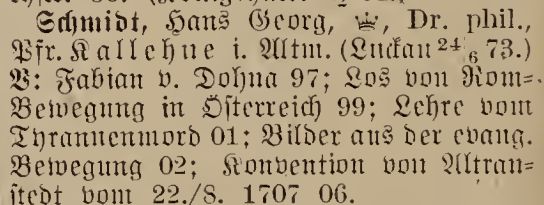 Schmidt, Hans Georg, Dr. phil.,
Pfr. Kallehne i. Altm. (Luckau 24/6 73.)
V: Fabian v. Dohna 97; Los von Rom=
Bewegung in Österreich 99; Lehre vom
Tyrannenmord 01; Bilder aus der evang.
Bewegung 02; Konvention von Altran=
stedt vom 22./8. 1707 06.